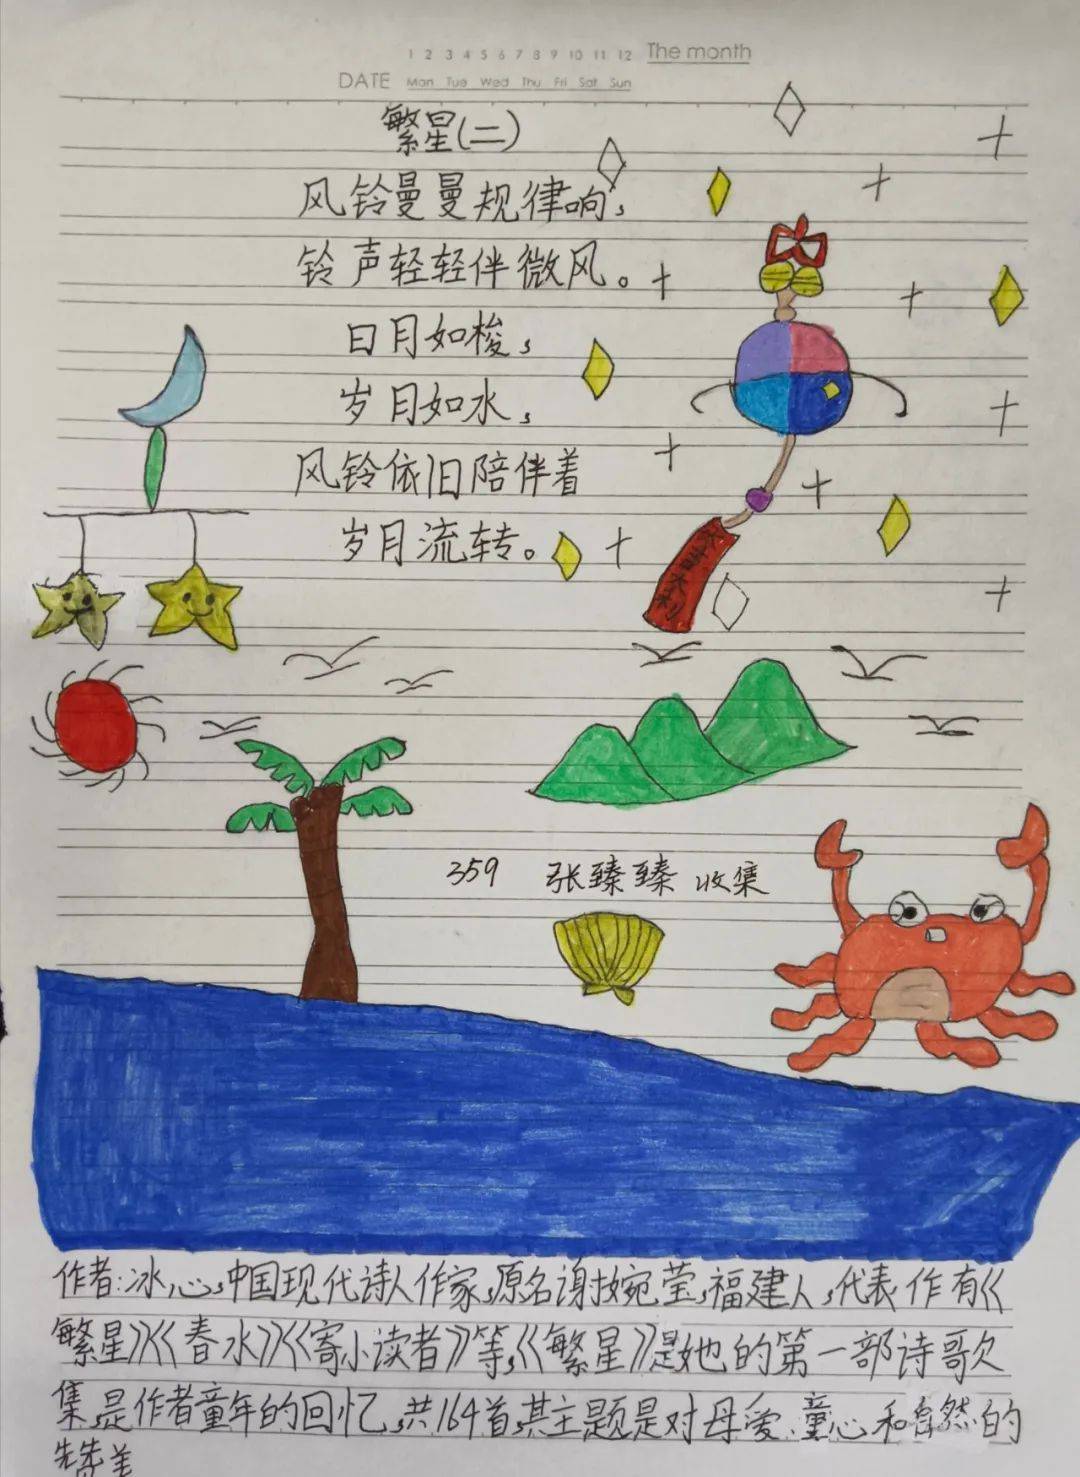 1 2 3 4 5 6 7 8 9 10 11 12 The month
DATE Mon Tue Wed Thu Fri Sat Sun
繁星(二)
风铃曼曼规律响,
铃声轻轻伴微风。
日月如梭,
岁月如水,
风铃依旧陪伴着
岁月流转。
大吉大利
359 张臻臻 收集
作者:冰心,中国现代诗人作家,原名谢婉莹,福建人,代表作有《
繁星》《春水》《寄小读者》等,《繁星》是她的第一部诗歌
集,是作者童年的回忆,共164首,其主题是对母爱、童心和自然的
赞美